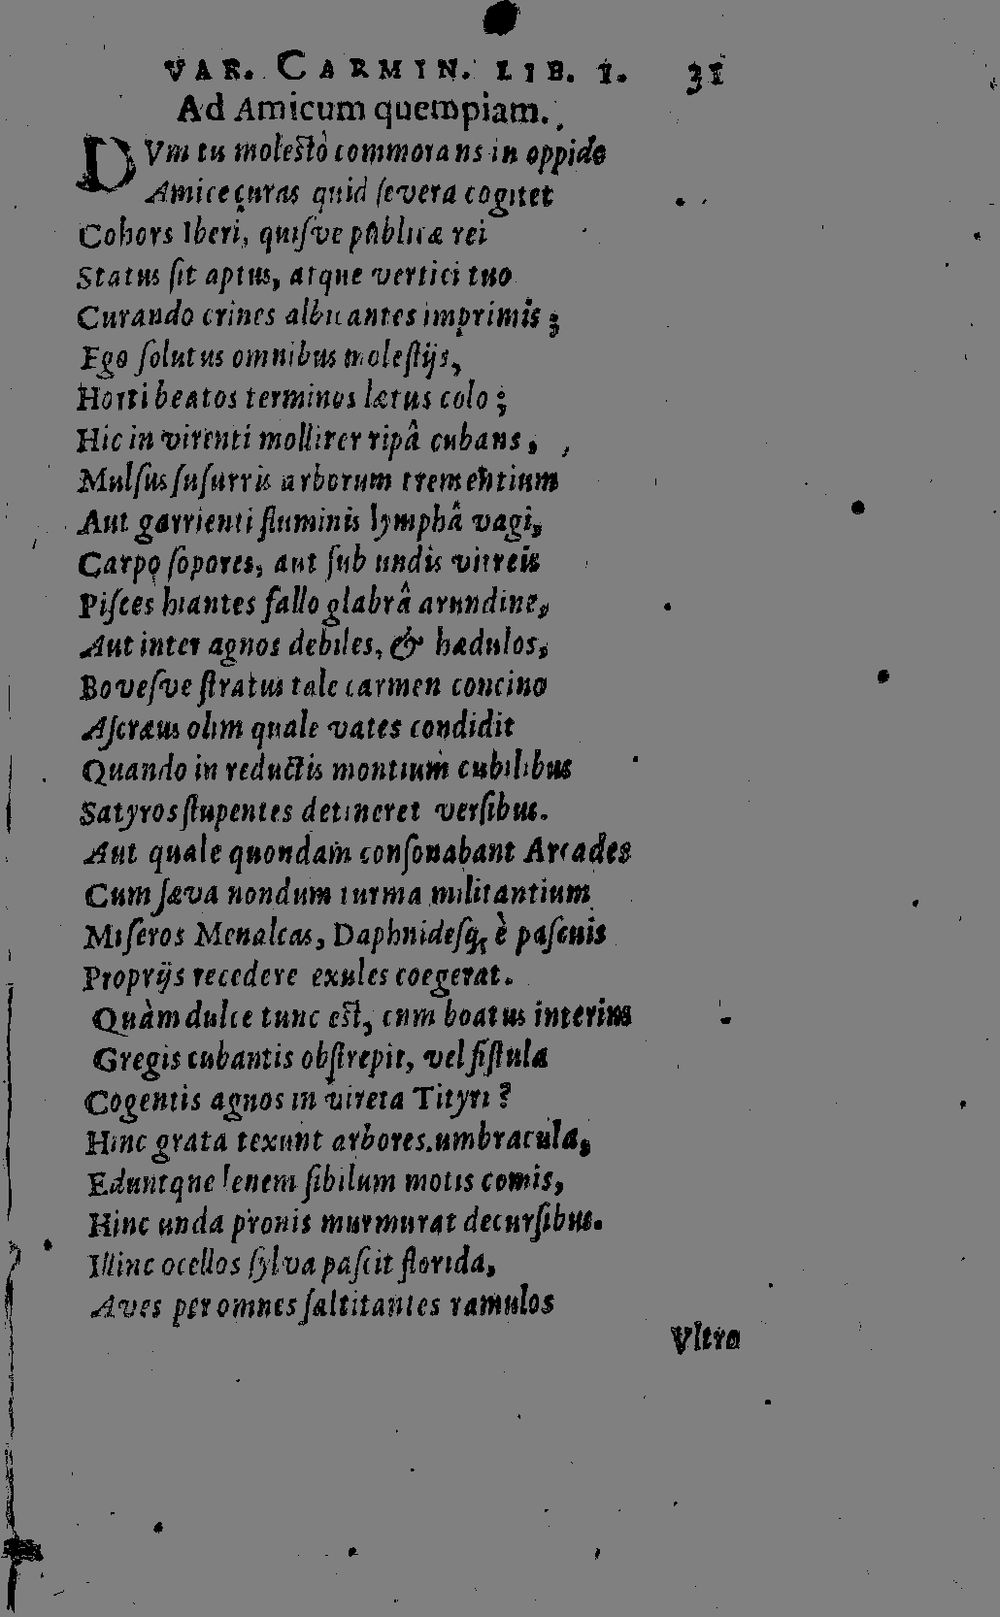 VAR. CARMIN. LIB. I. 31
Ad Amicum quempiam.
DVm tu molestò commorans in oppido
Amice curas quid severa cogitet
Cohors Iberi, quisve publicæ rei
Status sit aptus, atque vertici tuo
Curando crines albicantes imprimis;
Ego solutus omnibus molestijs,
Horti beatos terminos lætus colo;
Hic in virenti molliter ripâ cubans,
Mulsus susurris arborum trementium
Aut garrienti fluminis lymphâ vagi,
Carpo sopores, aut sub undis vitreis
Pisces hiantes fallo glabrâ arundine,
Aut inter agnos debiles, & hædulos,
Bovesve stratus tale carmen concino
Ascræus olim quale vates condidit
Quando in reductis montium cubilibus
Satyros stupentes detineret versibus.
Aut quale quondam consonabant Arcades
Cum sæva nondum turma militantium
Miseros Menalcas, Daphnidesq; è pascuis
Proprijs recedere exules coegerat.
Quàm dulce tunc est, cum boatus interim
Gregis cubantis obstrepit, vel fistula
Cogentis agnos in vireta Tityri?
Hinc grata texunt arbores umbracula,
Eduntque lenem sibilum motis comis,
Hinc unda pronis murmurat decursibus.
Illinc ocellos sylva pascit florida,
Aves per omnes saltitantes ramulos
Vltro